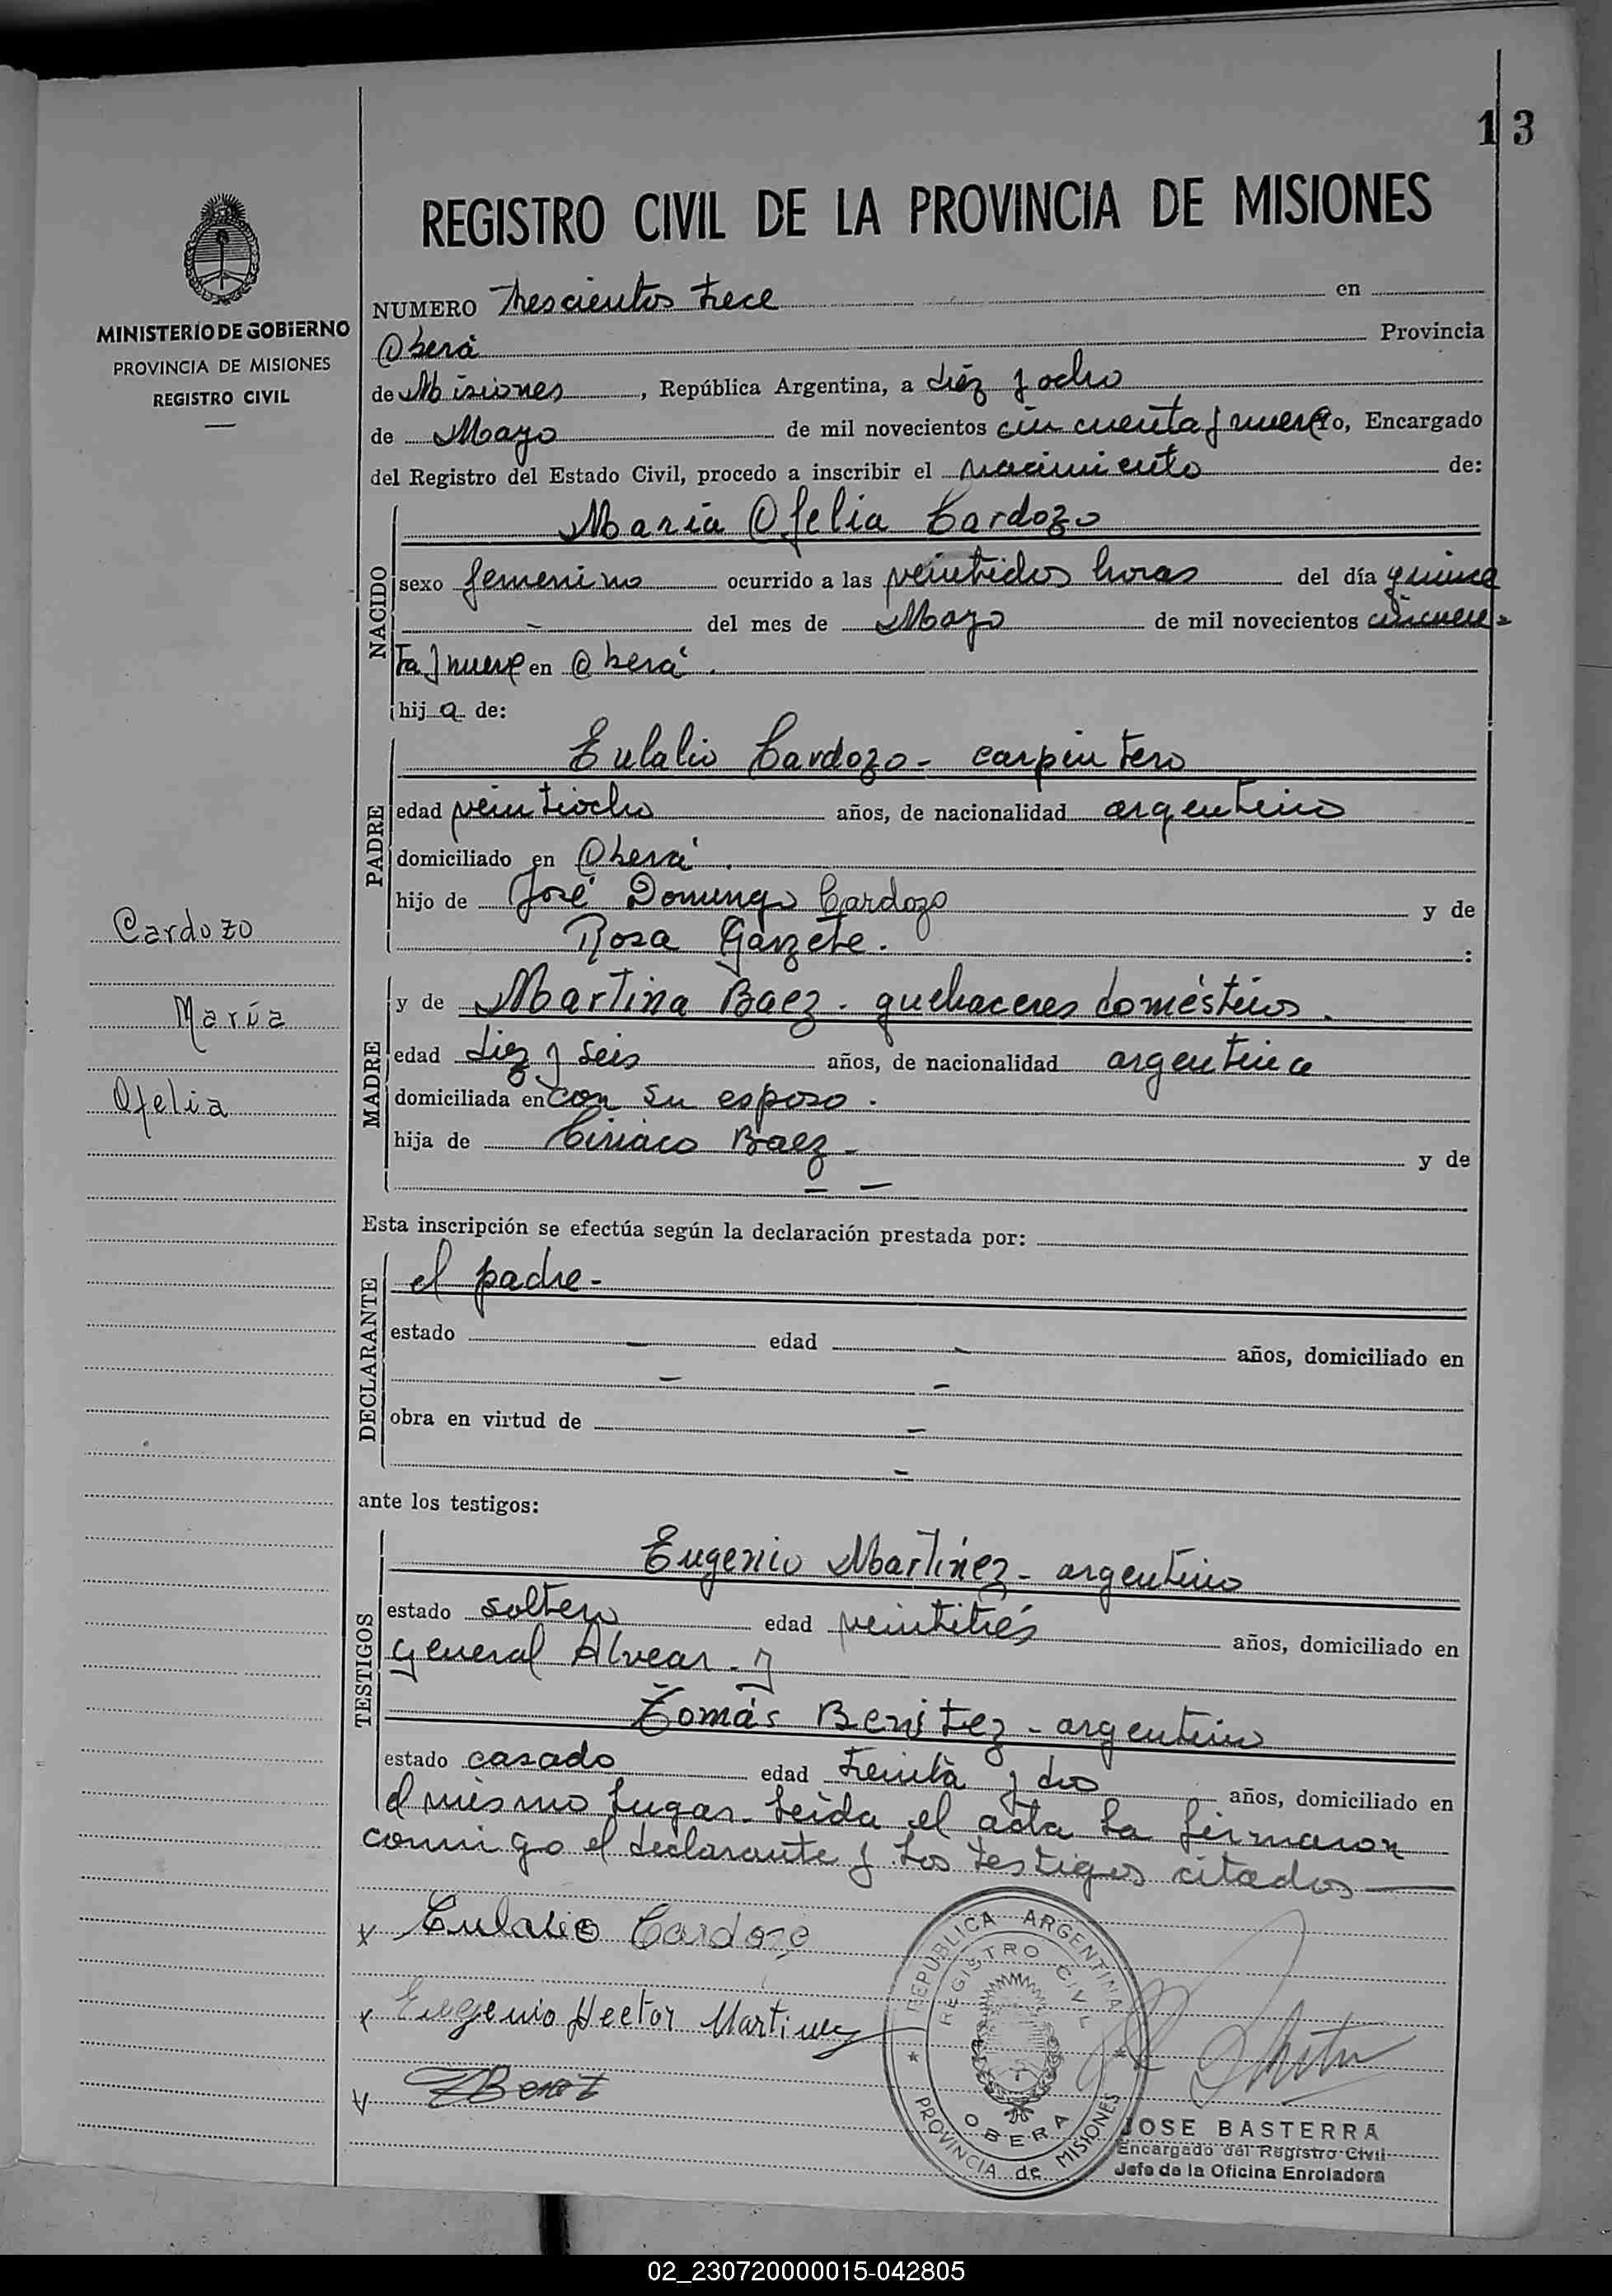 13
REGISTRO CIVIL DE LA PROVINCIA DE MISIONES
MINISTERIO DE GOBIERNO
PROVINCIA DE MISIONES
REGISTRO CIVIL
NUMERO Trescientos trece en
Oberá Provincia
de Misiones, República Argentina, a diéz y ocho
de Mayo de mil novecientos cincuenta y nueve yo, Encargado
del Registro del Estado Civil, procedo a inscribir el nacimiento de:
NACIDO
María Ofelia Cardozo
sexo femenino ocurrido a las veintidos horas del día quince
- del mes de Mayo de mil novecientos cincuen-
ta y nueve en Oberá.
hija de:
PADRE
Eulalio Cardozo - carpintero
edad veintiocho años, de nacionalidad argentino
domiciliado en Oberá.
hijo de José Domingo Cardozo y de
Rosa Gauzete. :
MADRE
y de Martina Baez - quehaceres domésticos.
edad diez y seis años, de nacionalidad argentina
domiciliada en con su esposo.
hija de Ciriaco Baez - y de
- -
Cardozo
María
Ofelia
Esta inscripción se efectúa según la declaración prestada por:
DECLARANTE
el padre -
estado - edad - años, domiciliado en
- -
obra en virtud de -
-
ante los testigos:
TESTIGOS
Eugenio Martínez - argentino
estado soltero edad veintitrés años, domiciliado en
General Alvear - y
Tomás Benitez - argentino
estado casado edad treinta y dos años, domiciliado en
el mismo lugar - Leida el acta la firmaron
conmigo el declarante y los testigos citados —
x Eulalio Cardozo
x Eugenio Hector Martinez
REPUBLICA ARGENTINA
REGISTRO CIVIL
OBERA
PROVINCIA de MISIONES
JOSE BASTERRA
Encargado del Registro Civil
Jefe de la Oficina Enroladora
02_230720000015-042805